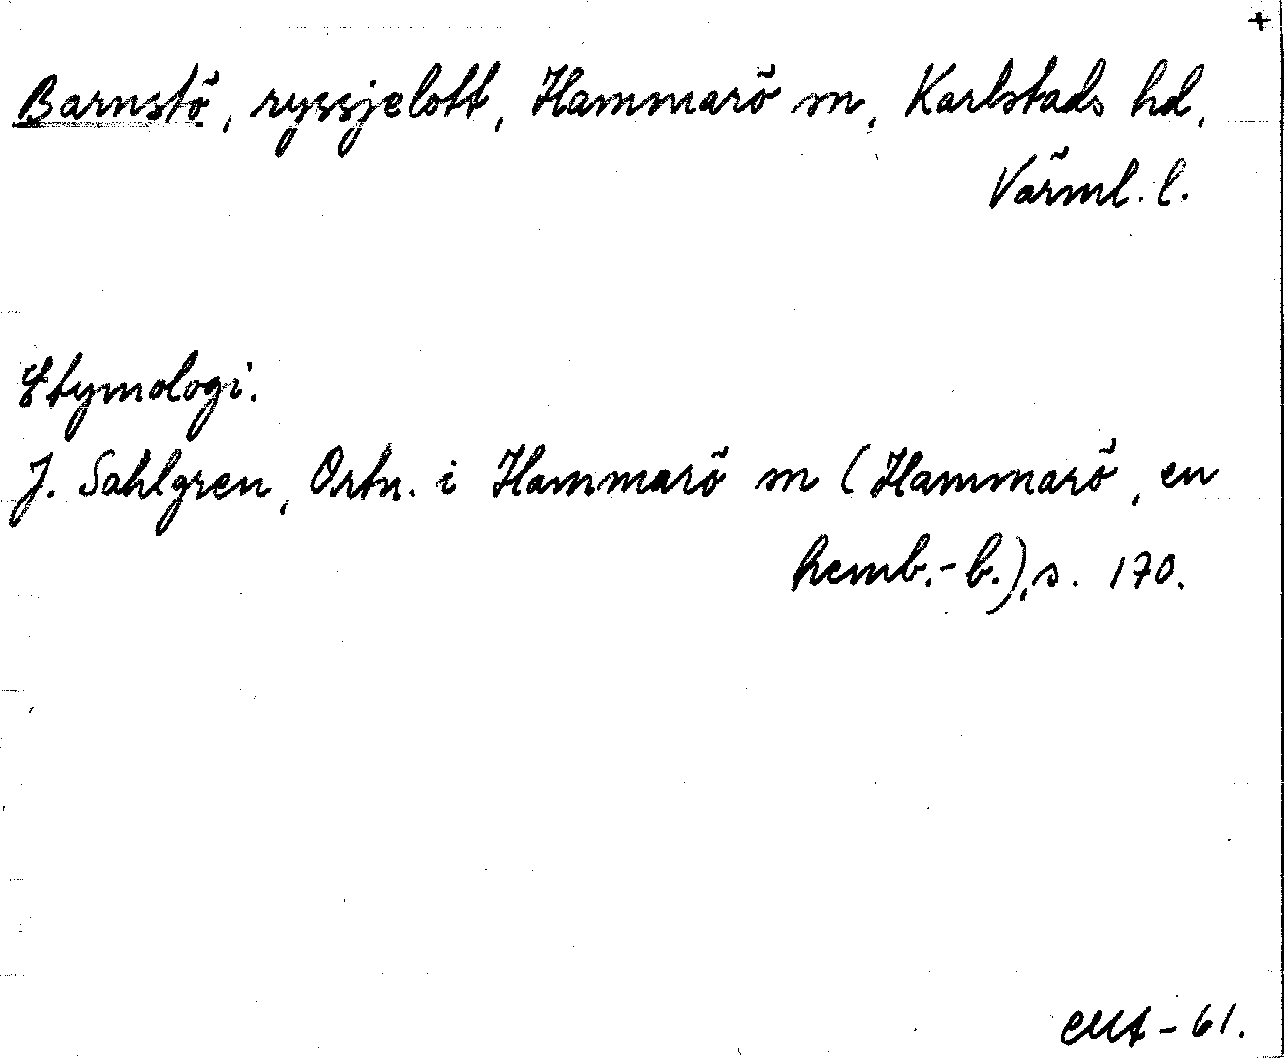 +
Barnstö, ryssjelott, Hammarö sn, Karlstads hd,
Värml. l.
Etymologi.
J. Sahlgren, Ortn. i Hammarö sn (Hammarö, en
hemb.-b.), s. 170.
-61.